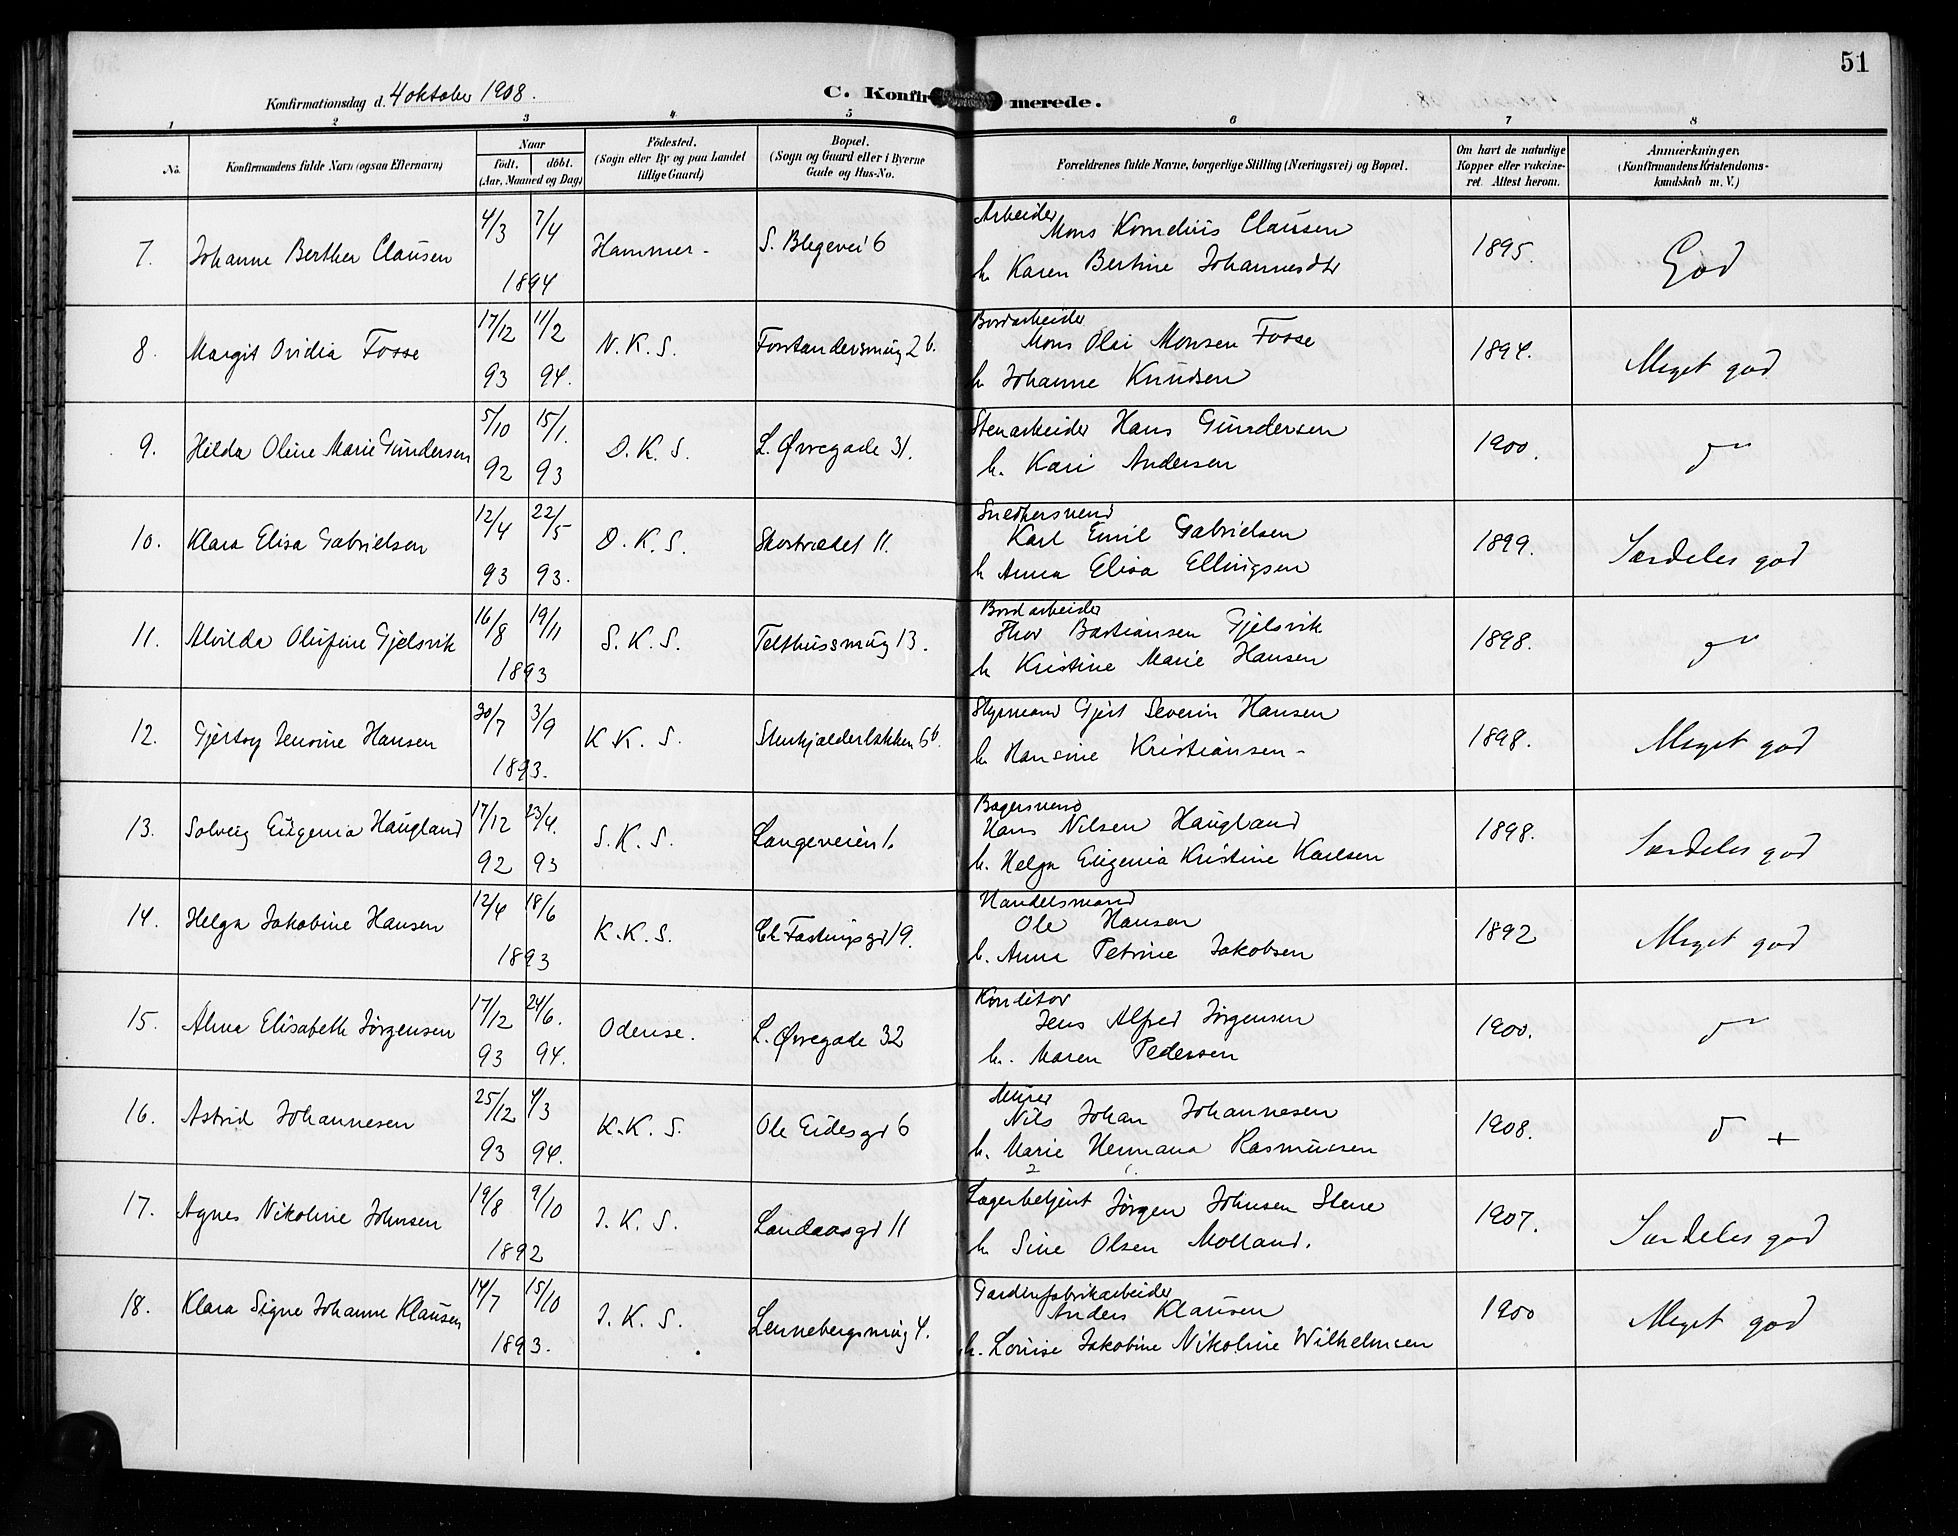 51
Konfirmationsdag d. 4 oktober 1908.
C. Konfirmerede.
1 2 3 4 5 6 7 8
No.
Konfirmandens fulde Navn (ogsaa Efternavn)
Naar
født. døbt.
(Aar, Maaned og Dag)
Fødested.
(Sogn eller By og paa Landet
tillige Gaard)
Bopæl.
(Sogn og Gaard eller i Byerne
Gade og Hus-No.
Forældrenes fulde Navne, borgerlige Stilling (Næringsvei) og Bopæl.
Om havt de naturlige
Kopper eller vakcine-
ret. Attest herom.
Anmærkninger,
(Konfirmandens Kristendoms-
kundskab m. V.)
7. Johanne Berthea Clausen 4/3 7/4 1894 Hammer - S. Blegevei 6
Arbeider
Mons Kornelius Clausen
h. Karen Bertine Johannesdtr
1895. God
8. Margit Ovidia Fosse 17/12 93 11/2 94. N. K. S. Forstandersmug 2 b.
Bordarbeider
Mons Olai Monsen Fosse
h. Johanne Knudsen
1894. Meget god
9. Hilda Oline Marie Gundersen 5/10 92 15/1. 93 D. K. S. L. Øvregade 31.
Stenarbeider Hans Gundersen
h. Kari Andersen
1900. do
10. Klara Elisa Gabrielsen 12/4 93 22/5 93. D. K. S. Skostrædet 11.
Snedkersvend
Karl Emil Gabrielsen
h Anna Elisa Ellingsen
1899. Særdeles god
11. Alvilda Olufine Gjelsvik 16/8 19/11 1893 S. K. S. Telthussmug 13.
Bordarbeider
Thor Bastiansen Gjelsvik
h Kristine Marie Hansen
1898. do
12. Gjertsy Jensine Hansen 30/7 3/9 1893. K K. S. Stenkjelderløkken 6 b.
Styrmand Gjert Severin Hansen
h. Hansine Kristiansen -
1898. Meget god
13. Solveig Eugenia Haugland 17/12 92 23/4. 93 S. K. S. Langeveien 1.
Bagersvend
Hans Nilsen Haugland
h. Helga Eugenia Kristine Karlsen
1898. Særdeles god
14. Helga Jakobine Hansen 12/4 18/6 1893 K. K. S. Cl. Fastingsgd 19.
Handelsmand
Ole Hansen
h. Anna Petrine Jakobsen
1892 Meget god
15. Alma Elisabeth Jørgensen 17/12 93 24/6. 94. Odense. L. Øvregade 32
Konditor
Jens Alfred Jørgensen
h. Maren Pedersen
1900. do
16. Astrid Johannesen 25/12 93 4/3 94. K. K. S. Ole Eidesgd 6
Murer
Nils Johan Johannesen
h. Marie Hermana Rasmussen
2 1.
1908. do +
17. Agnes Nikoline Johnsen 19/8 9/10 1892 J. K. S. Landaasgd 11
Lagerbetjent Jørgen Johnsen Stene
h Sine Olsen Molland.
1907. Særdeles god
18. Klara Signe Johanne Klausen 14/7 15/10 1893. J. K. S. Lennebergsmug 4.
Gardinfabrikarbeider
Anders Klausen
h. Louise Jakobine Nikoline Wilhelmsen
1900 Meget god